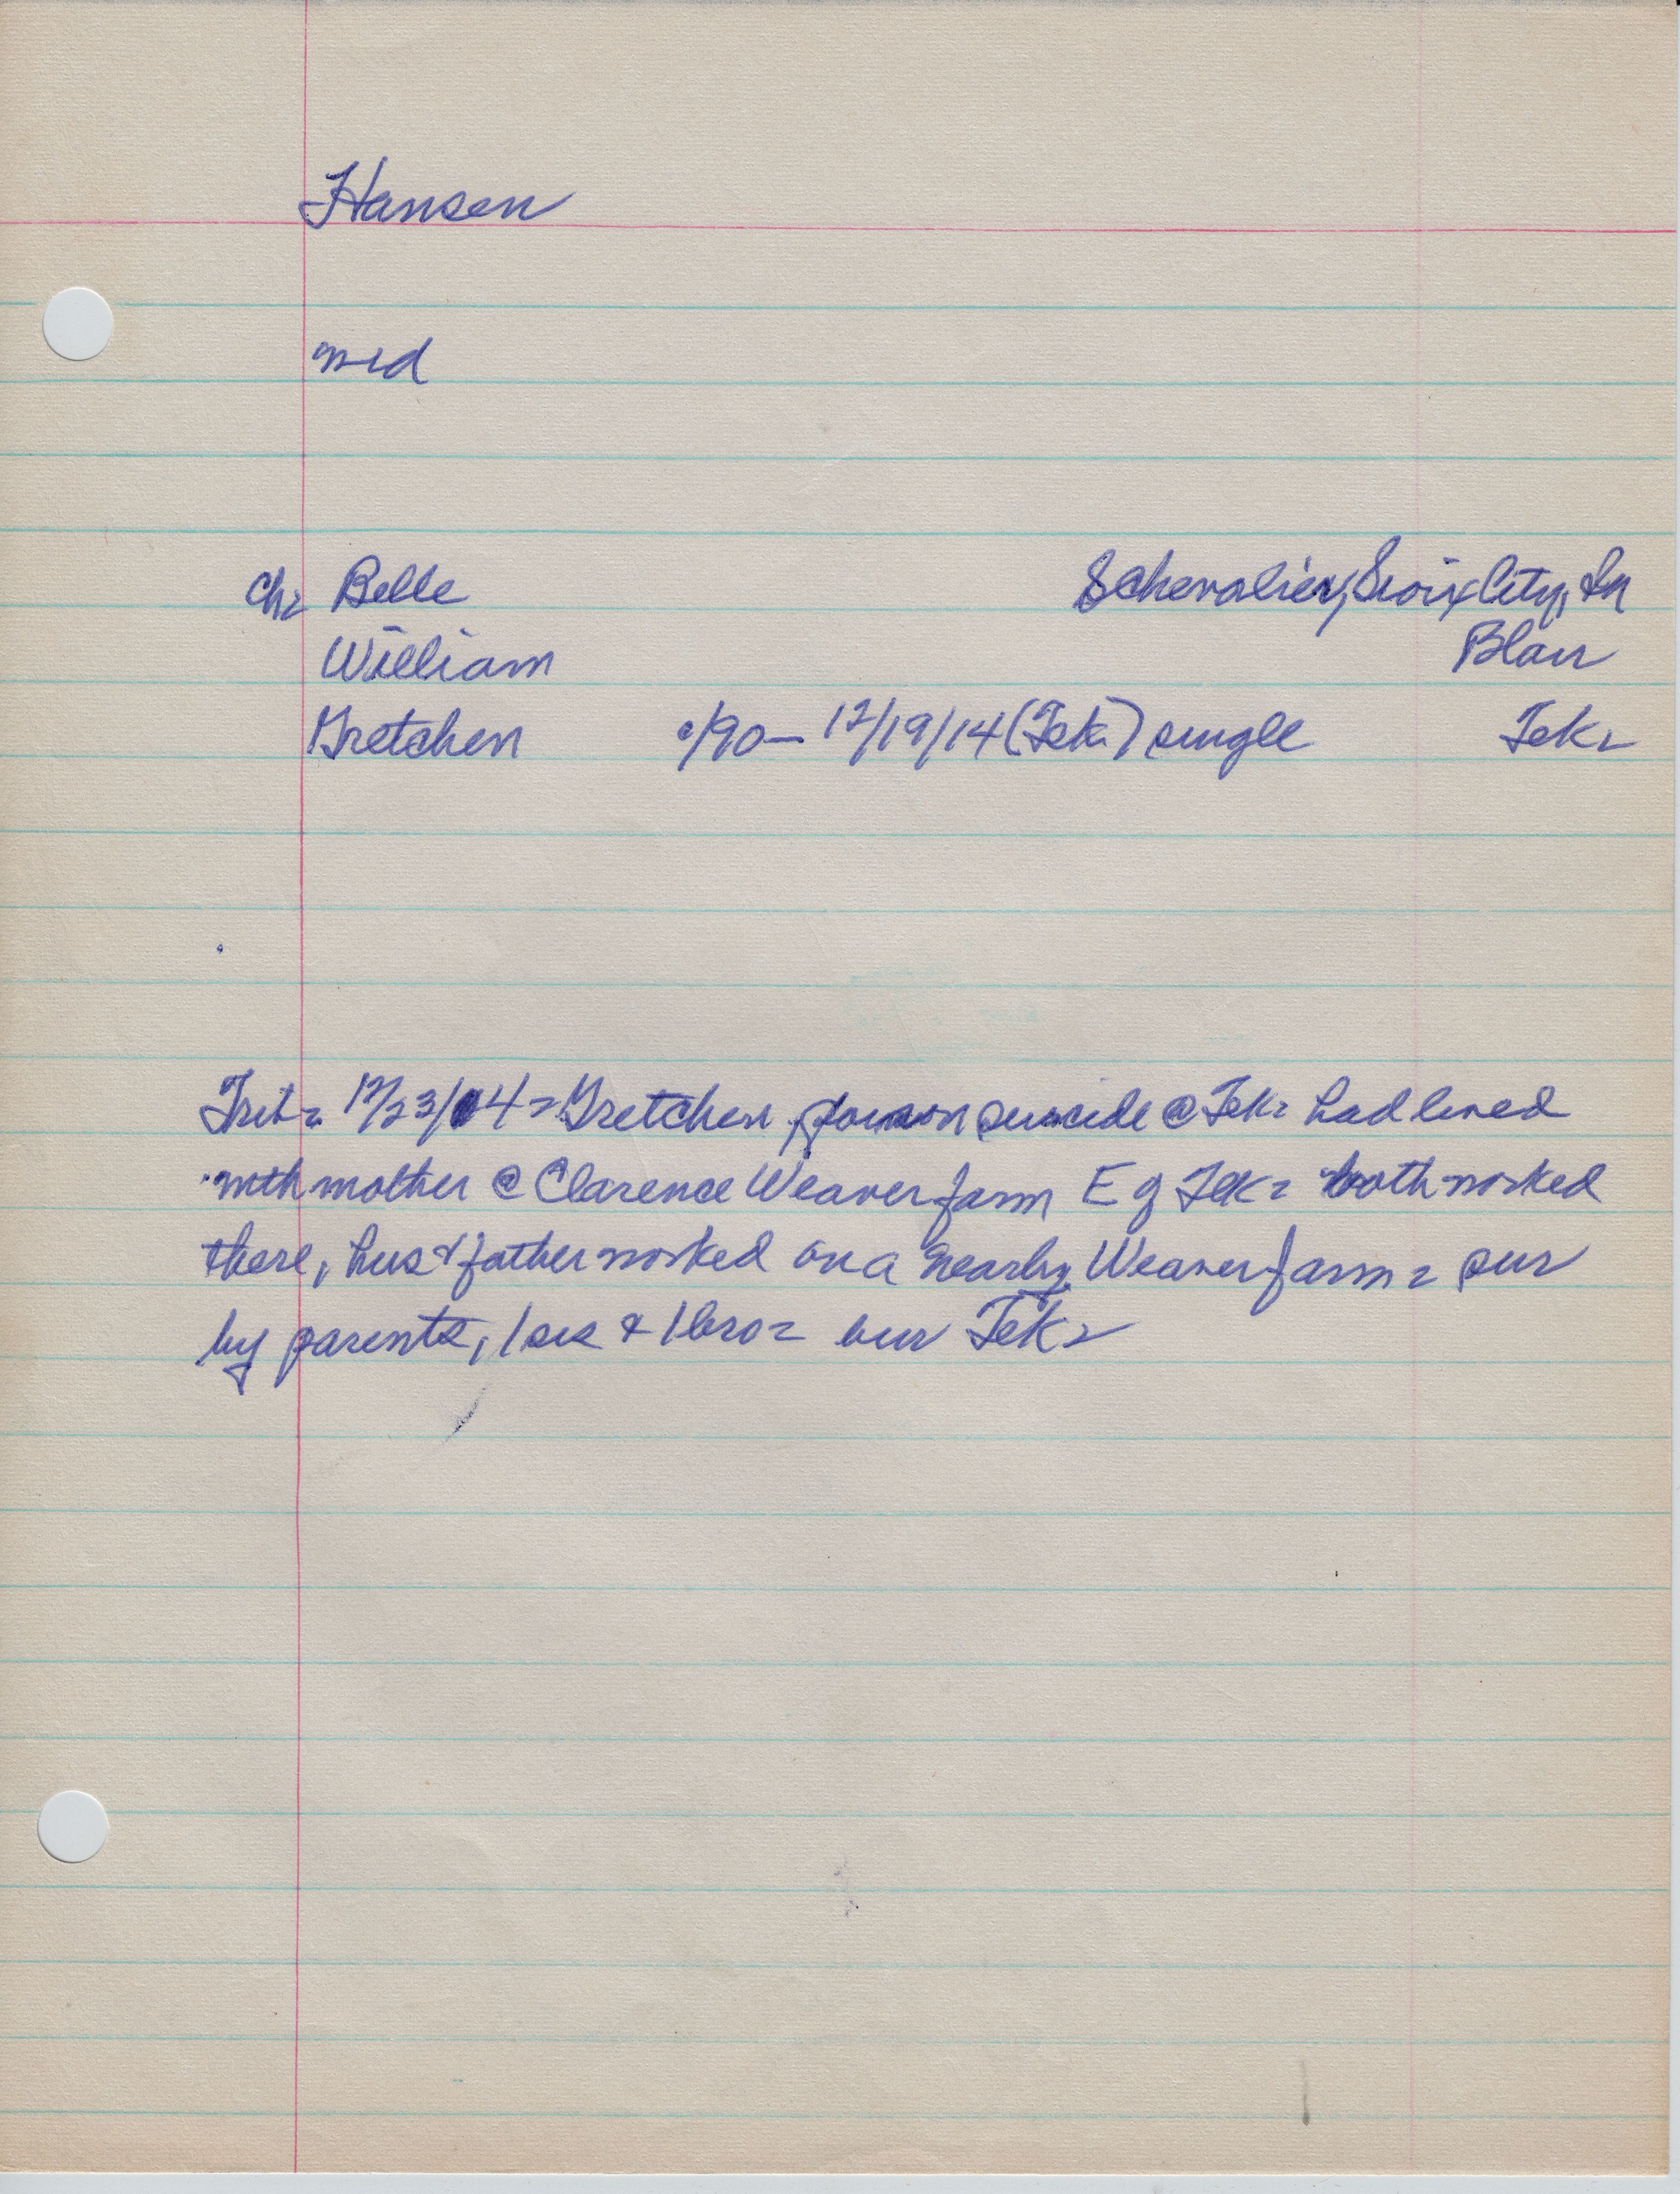 Hansen
md
ch= Belle Schevalier, Sioix City, Ia
William Blair
Gretchen c/90 — 12/19/14 (Tek.) single Tek=
Trib= 12/23/14= Gretchen, poison suicide @ Tek= had lived
with mother @ Clarence Weaver farm E of Tek= both worked
there, hus & father worked on a nearby Weaver farm= sur
by parents, 1 sis & 1 bro= bur Tek=